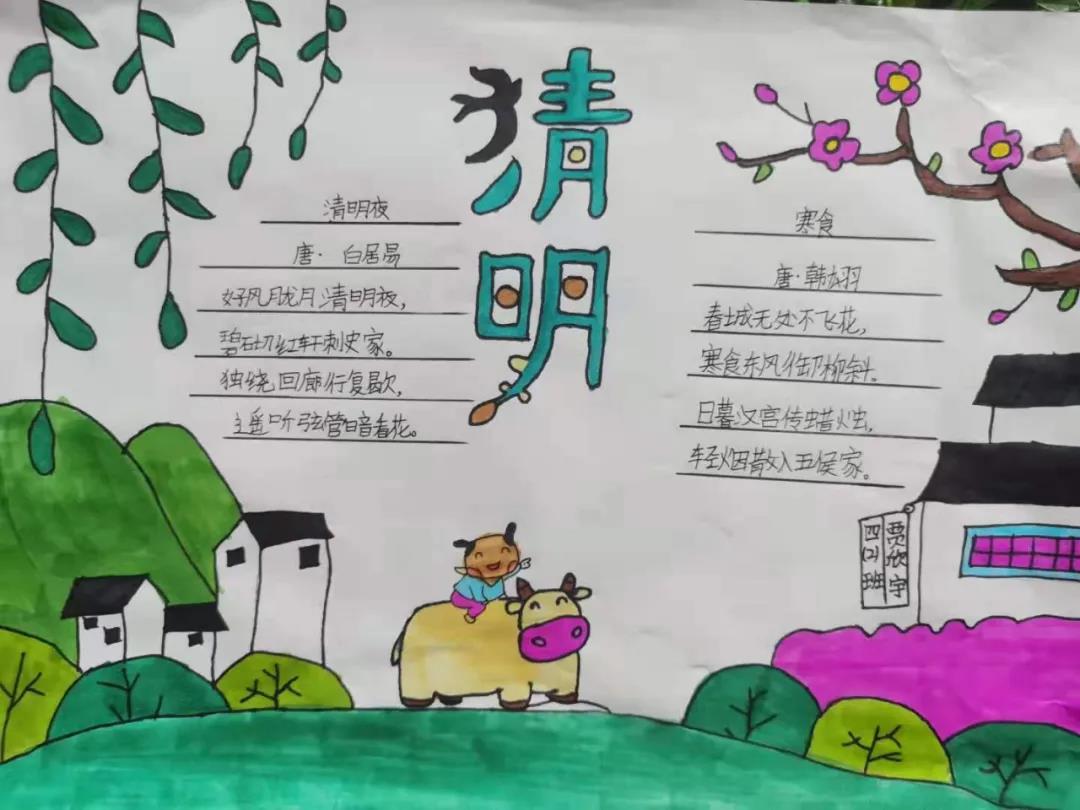 清明
清明夜
唐· 白居易
好风胧月清明夜，
碧砌红轩刺史家。
独绕回廊行复歇，
遥听弦管暗看花。
寒食
唐·韩翃
春城无处不飞花，
寒食东风御柳斜。
日暮汉宫传蜡烛，
轻烟散入五侯家。
四(2)班
贾欣宇